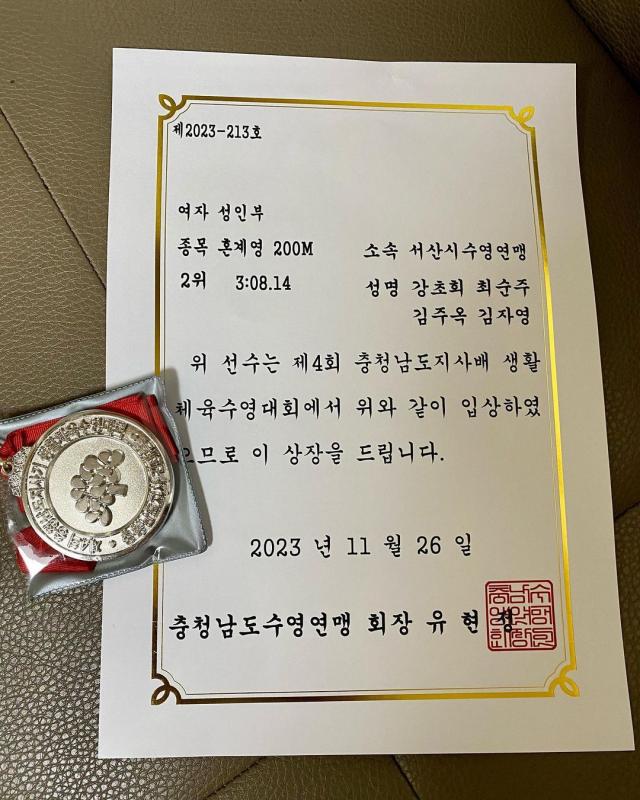 제2023-213호
여자 성인부
종목 혼계영 200M 소속 서산시수영연맹
2위 3:08.14 성명 강초희 최순주
김주옥 김자영
위 선수는 제4회 충청남도지사배 생활
체육수영대회에서 위와 같이 입상하였
으므로 이 상장을 드립니다.
2023 년 11 월 26 일
충청남도수영연맹 회장 유 현